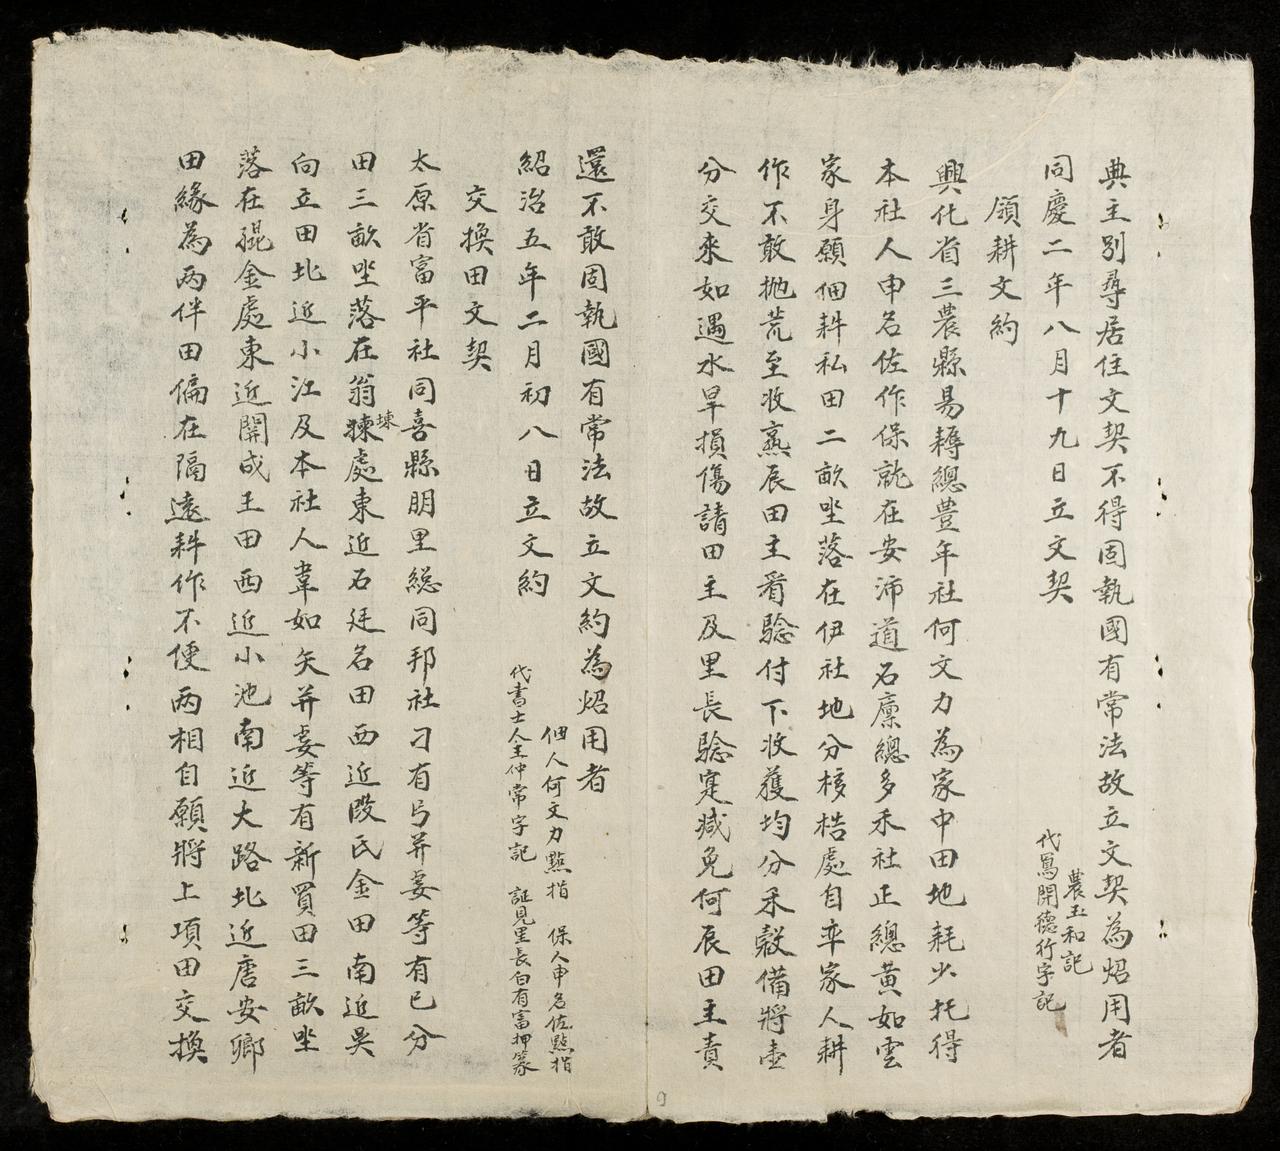 典主別尋居住文契不得固執國有常法故立文契為炤用者
同慶二年八月十九日立文契
農玉和記
代寫開德行字記
領耕文約
興化省三農縣易耨總豊年社何文力為家中田地耗少托得
本社人申名佐作保就在安沛道石廩總多禾社正總黄如雲
家身願佃耕私田二畝坐落在伊社地分核梏處自率家人耕
作不敢抛荒至收熟辰田主看驗付下收獲均分禾穀備將壹
分交來如遇水旱損傷請田主及里長驗寔減免何辰田主責
還不敢固執國有常法故立文約為炤用者
紹治五年二月初八日立文約
佃人何文力點指 保人申名佐點指
代書士人王仲常字記 証見里長白有富押篆
交換田文契
太原省富平社同喜縣朋里總同邦社刁有弓并妻等有已分
田三畝坐落在翁𢹈堜處東近石廷名田西近段氏金田南近吳
向立田北近小江及本社人韋如矢并妻等有新買田三畝坐
落在混金處東近開成王田西近小池南近大路北近唐安鄉
田緣為兩伴田偏在隔遠耕作不便两相自願將上項田交換